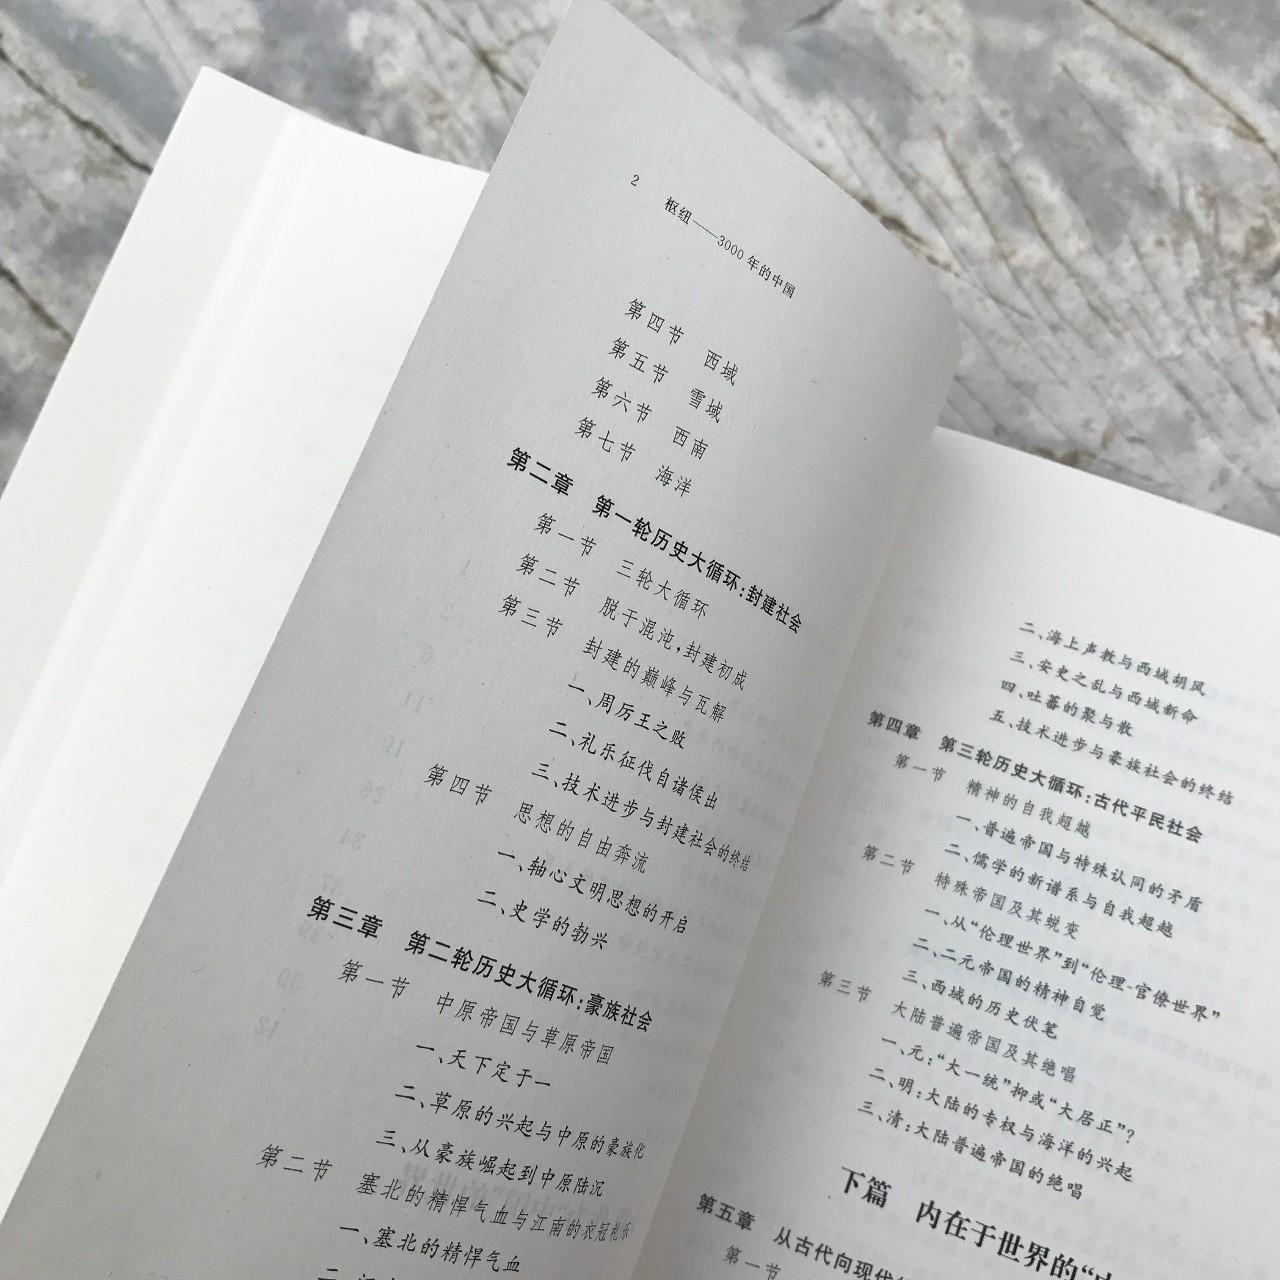 2 枢纽——3000 年的中国
第四节 西域
第五节 雪域
第六节 西南
第七节 海洋
第二章 第一轮历史大循环:封建社会
第一节 三轮大循环
第二节 脱于混沌,封建初成
第三节 封建的巅峰与瓦解
一、周厉王之败
二、礼乐征伐自诸侯出
三、技术进步与封建社会的终结
第四节 思想的自由奔流
一、轴心文明思想的开启
二、史学的勃兴
第三章 第二轮历史大循环:豪族社会
第一节 中原帝国与草原帝国
一、天下定于一
二、草原的兴起与中原的豪族化
三、从豪族崛起到中原陆沉
第二节 塞北的精悍气血与江南的衣冠礼乐
一、塞北的精悍气血
二、海上声教与西域胡风
三、安史之乱与西域新命
四、吐蕃的聚与散
五、技术进步与豪族社会的终结
第四章 第三轮历史大循环:古代平民社会
第一节 精神的自我超越
一、普遍帝国与特殊认同的矛盾
二、儒学的新谱系与自我超越
第二节 特殊帝国及其蜕变
一、从“伦理世界”到“伦理-官僚世界”
二、二元帝国的精神自觉
三、西域的历史伏笔
第三节 大陆普遍帝国及其绝唱
一、元:“大一统”抑或“大居正”?
二、明:大陆的专权与海洋的兴起
三、清:大陆普遍帝国的绝唱
下篇 内在于世界的“
第五章 从古代向现代
第一节